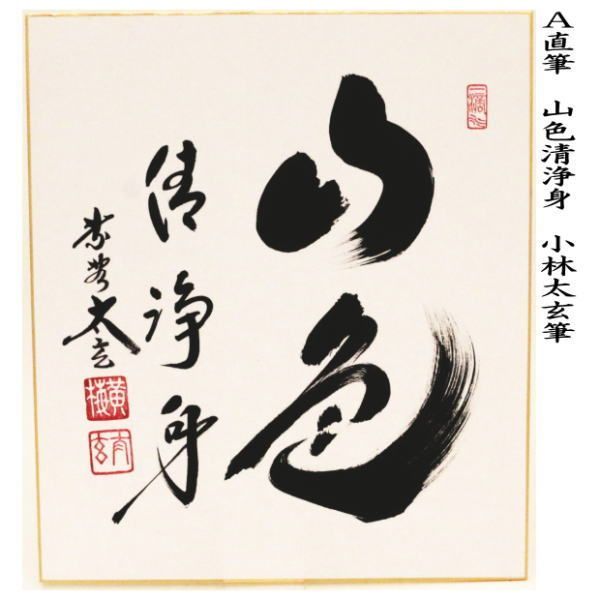 A直筆 山色清浄身 小林太玄筆
山色
清浄身
紫野太玄
黄梅
太玄